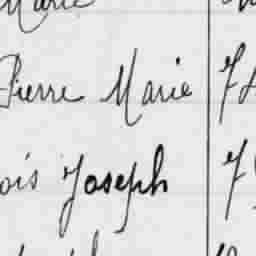 Marie
Pierre Marie
ois Joseph